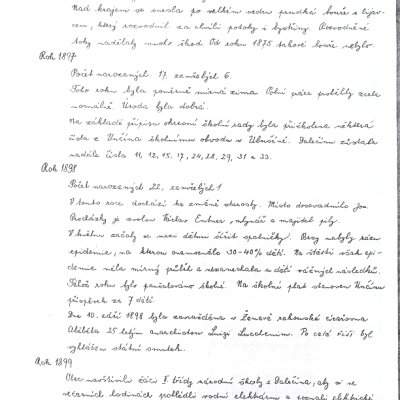 Nad krajem se snesla po velkém vedru prudká bouře s lijav-
cem, který rozvodnil za chvíli potoky i bystřiny. Rozvodněné
toky nadělaly mnoho škod. Od roku 1875 takové bouře nebylo.
Rok 1897
Počet narozených 17, zemřelých 6.
Toto roku byla poměrně mírná zima. Polní práce proběhly zcela
normálně. Úroda byla dobrá.
Na základě přípisu okresní školní rady byla přiškolena některá
čísla z Unčína školnímu obvodu v Ubušíně. Dalečínu zůstala
nadále čísla 11, 12, 15, 17, 24, 28, 29, 31 a 33.
Rok 1898
Počet narozených 22, zemřelých 1
V tomto roce dochází ke změně starosty. Místo dosavadního Jos.
Procházky je zvolen Václav Entner, mlynář a majitel pily.
V květnu začaly se mezi dětmi šířit spalničky. Brzy nabyly rázu
epidemie, na kterou onemocnělo 30-40% dětí. Na štěstí však epi-
demie měla mírný průběh a nezanechala u dětí vážných následků.
Téhož roku bylo pamatováno školné. Na školné plat stanoven Unčínu
příspěvek za 7 dětí.
Dne 10. září 1898 byla zavražděna v Ženevě rakouská císařovna
Alžběta 25 letým anarchistou Luigi Luchenim. Po celé říši byl
vyhlášen státní smutek.
Rok 1899
Obec navštívili žáci I třídy národní školy z Dalečína, aby si ve
večerních hodinách prohlédli vodní elektrárnu a poznali elektrické